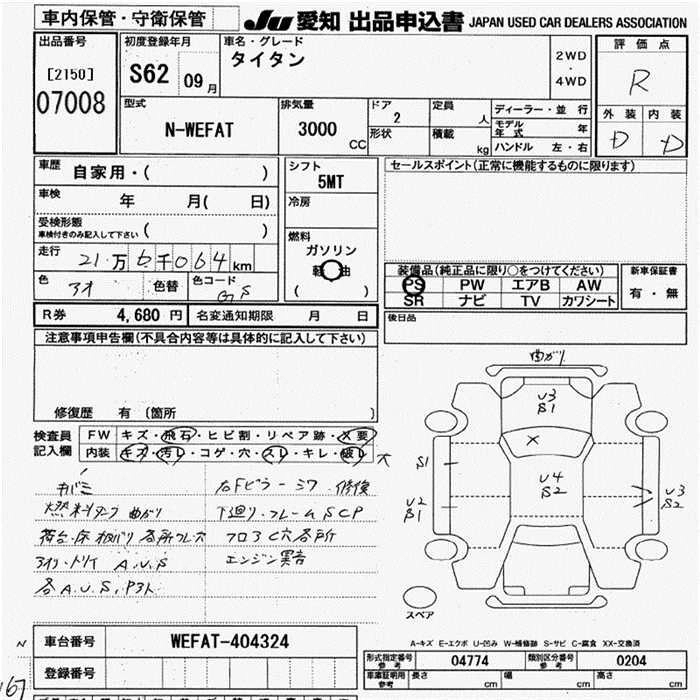 車内保管・守衛保管
JU 愛知 出品申込書 JAPAN USED CAR DEALERS ASSOCIATION
出品番号
[2150]
07008
初度登録年月
S62 09 月
車名・グレード
タイタン
2WD
・
4WD
評価点
R
外装 内装
D D
型式
N-WEFAT
排気量
3000 CC
ドア
2
形状
定員
人
積載
kg
ディーラー・並 行
モデル年式 年
ハンドル 左・右
車歴 自家用・( )
車検 年 月( 日)
受検形態
車検付きのみ記入して下さい ( )
走行 21万6千064 km
色 アオ 色替 色コード GS
シフト
5MT
冷房
燃料
ガソリン
軽 油
( )
セールスポイント(正常に機能するものに限ります)
装備品(純正品に限り○をつけてください)
PS PW エアB AW
SR ナビ TV カワシート
新車保証書
有・無
R券 4,680 円 名変通知期限 月 日
後日品
注意事項申告欄(不具合内容等は具体的に記入して下さい)
修復歴 有 〔箇所 〕
検査員
記入欄
FW キズ・飛石・ヒビ割・リペア跡・X要
内装 キズ・汚レ・コゲ・穴・スレ・キレ・破レ 大
キバミ
燃料タンク 曲がり
荷台・床 板バリ 各所フレ穴
各A.U.S.P
右Fピラー ミワ 修復
下廻り・フレームSCP
フロアC穴各所
エンジン異音
曲がり
U3
S1
X
S1
U4
S2
U2
S1
U3
S2
スペア
A-キズ E-エクボ U-凹み W-補修跡 S-サビ C-腐食 XX-交換済
車台番号 WEFAT-404324
登録番号
形式指定番号
参考
04774
類別区分番号
参考
0204
車庫証明用
参考
長さ cm 幅 cm 高さ cm
N
167